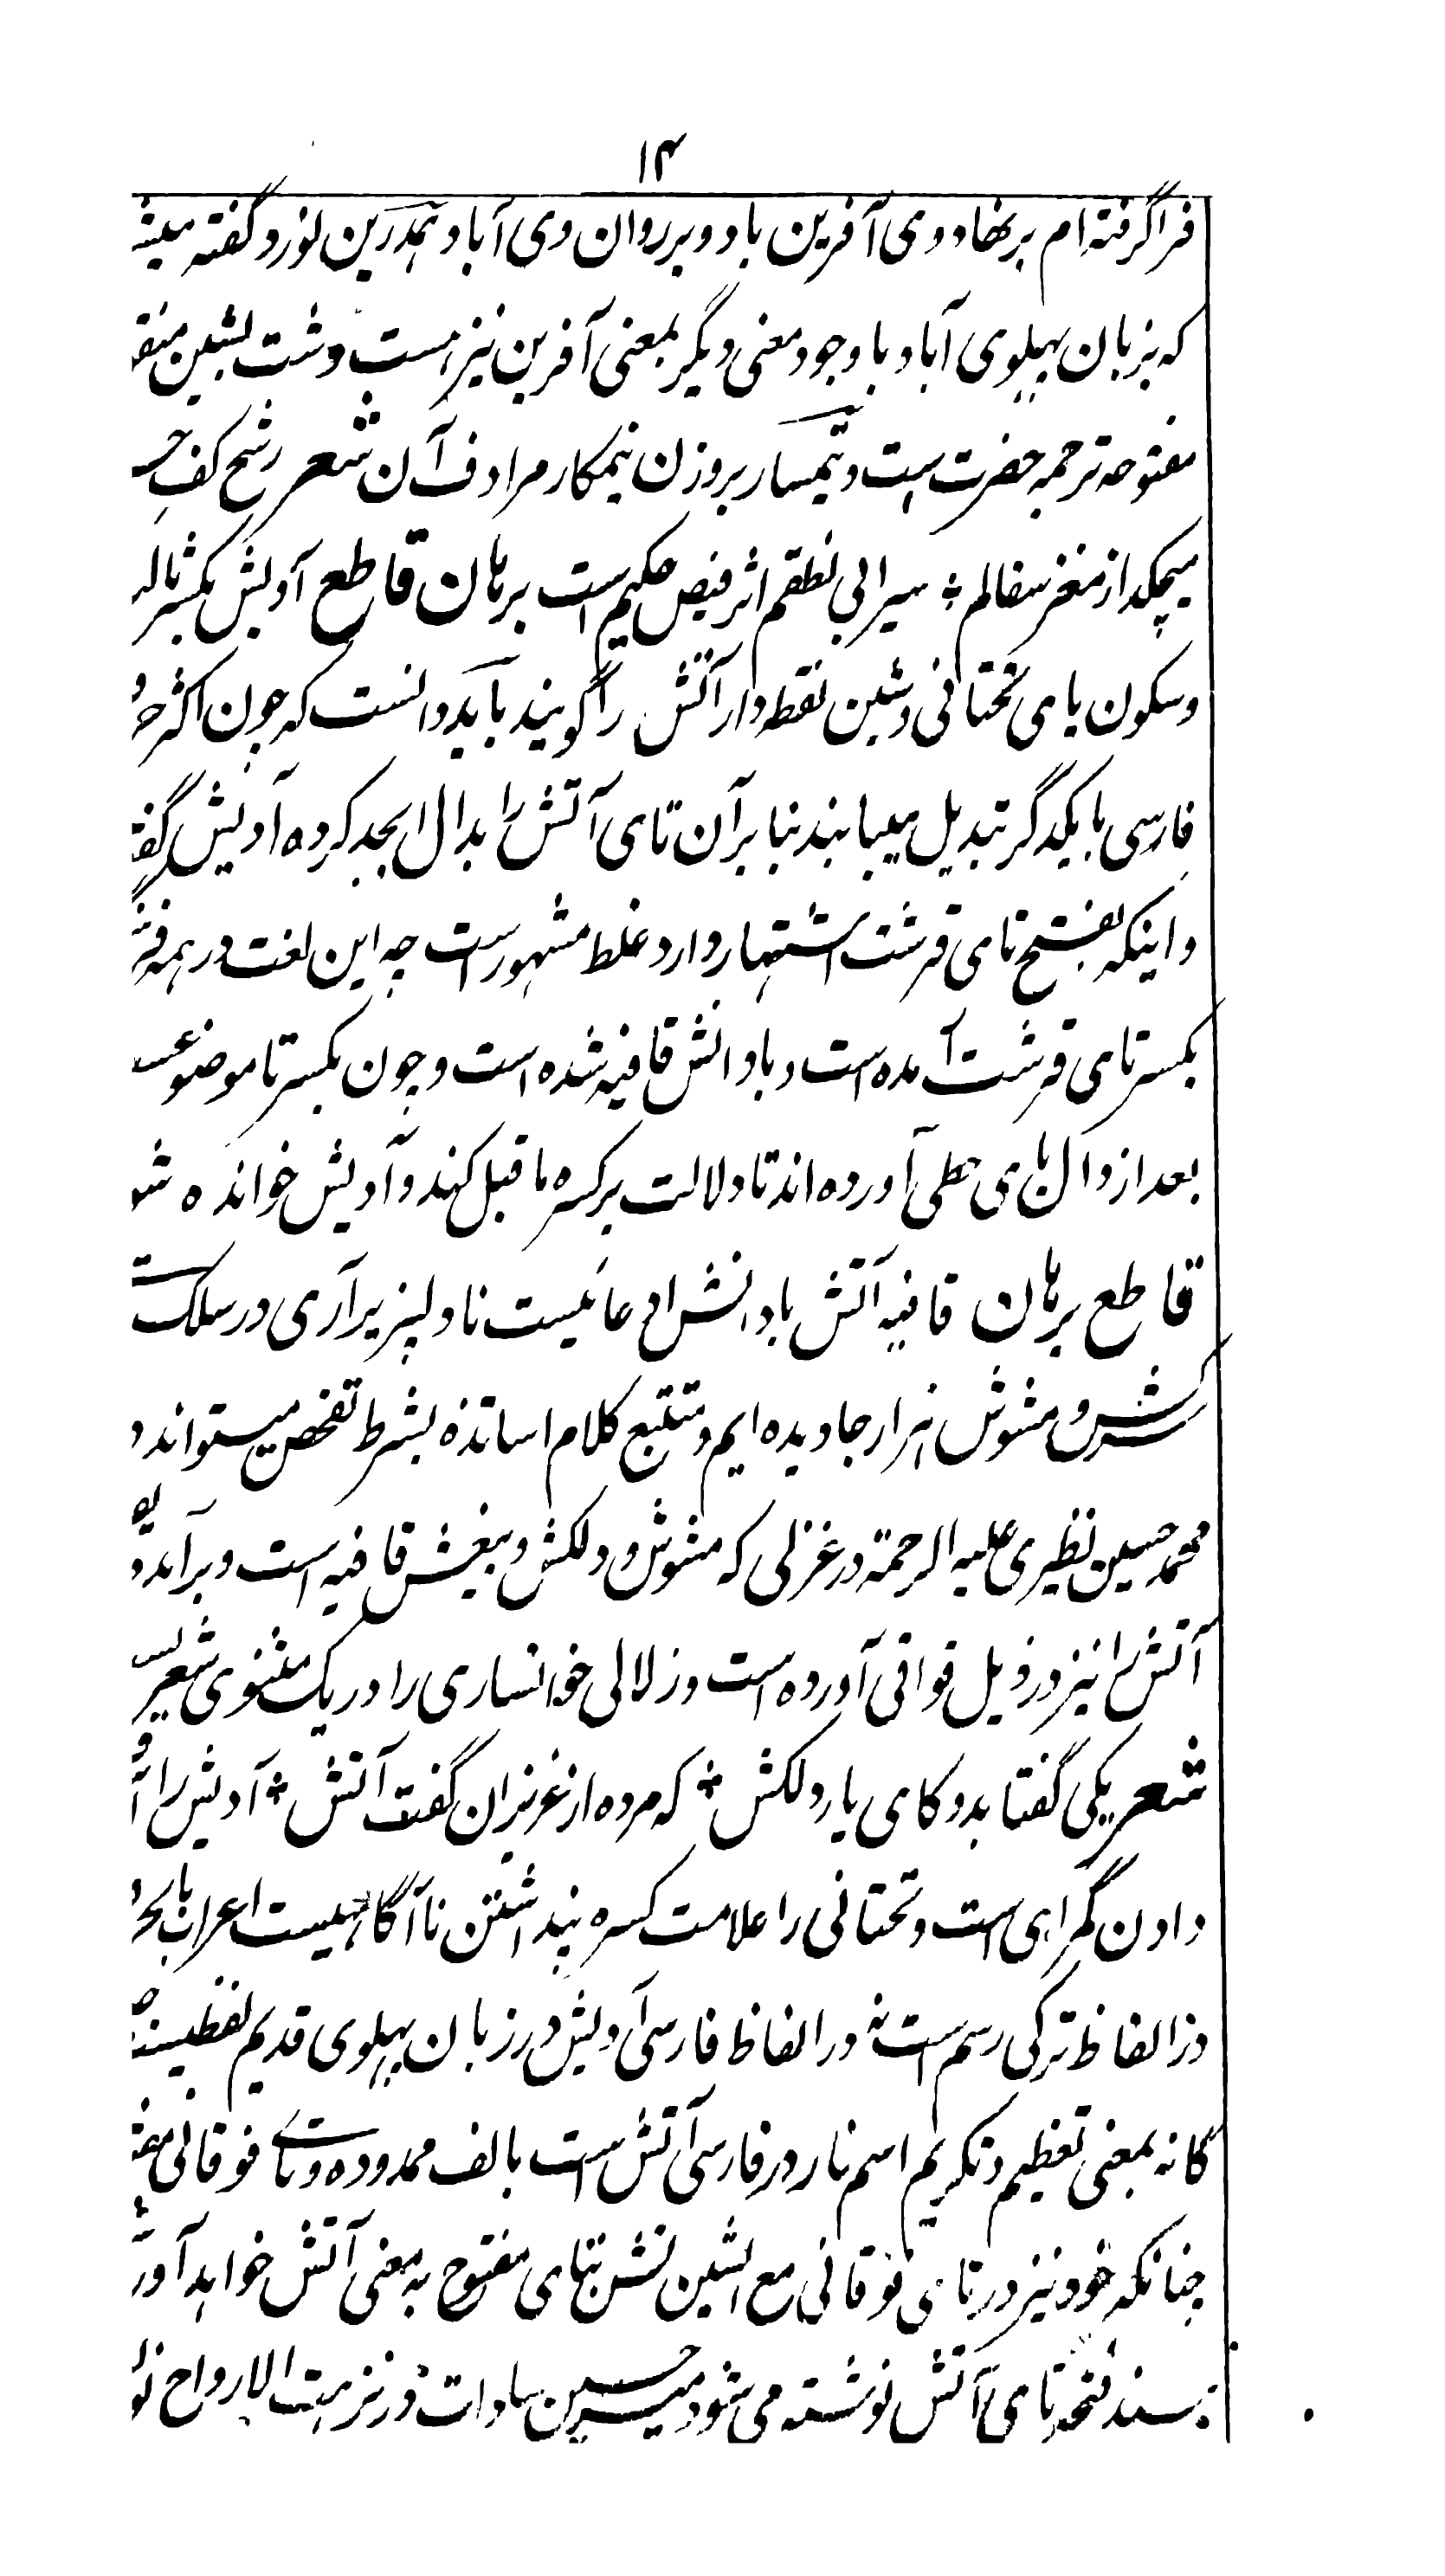 ۱۴
فراگرفته ام بر نهاد وی آفرین باد و بر روان وی آباد همدرین نورد گفته
که بزبان پهلوی آباد باوجود معنی دیگر بمعنی آفرین نیز هست و شت بشین
مفتوحه ترجمه حضرت ست و تیمسار بروزن نیمکار مرادف آن شعر رشح کف
میچکد از مغز سفالم ؛ سیرابی نطقم اثر فیض حکیم است برهان قاطع آدیش بکسر ثالث
و سکون یای تحتانی و شین نقطه دار آتش را گویند باید دانست که چون اکثر
فارسی بایکدگر تبدیل مییابند بنا بر آن تای آتش را بدال ابجد کرده آدیش
و اینکه بفتح تای قرشت اشتهار دارد غلط مشهور است چه این لغت در همه
بکسر تای قرشت آمده است و با دانش قافیه شده است و چون بکسر تا موضوع
بعد از دال یای حطی آورده اند تا دلالت بر کسره ماقبل کند و آدیش خوانده شو
قاطع برهان قافیه آتش با دانش ادعائیست نادلپذیر آری در سلک
سرکش و مشوش هزار جا دیده ایم و متتبع کلام اساتذه بشرط تفحص میتواند
محمد حسین نظیری علیه الرحمة در غزلی که مشوش و دلکش و بیغش قافیه است
آتش را نیز در ذیل قوافی آورده است و زلالی خوانساری را در یک مثنوی شعر
شعر یکی گفتا بدو کای یار دلکش ؛ که مرده از عزیزان گفت آتش ؛ آدیش را
دادن گمراهی است و تحتانی را علامت کسره پنداشتن ناآگاهیست اعراب
در الفاظ ترکی رسم است نه در الفاظ فارسی آدیش در زبان پهلوی قدیم
گانه بمعنی تعظیم و تکریم اسم نار در فارسی آتش است بالف ممدوده و تای فوقانی
چنانکه خود نیز در تای فوقانی مع الشین تش بتای مفتوح به معنی آتش خواهد
سند فتحه تای آتش نوشته می شود میر حسین سادات در نزهت الارواح